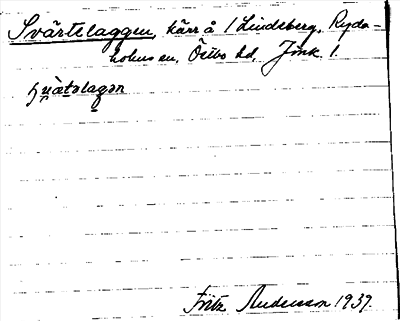 Svärtelaggen, kärr å 1 Lindeberg, Ryda-
holms sn, Östbo hd, Jönk. l.
Fritz Andersson 1939.